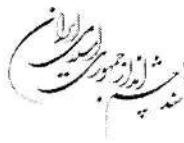 سند چشم‌انداز جمهوری اسلامی ایران